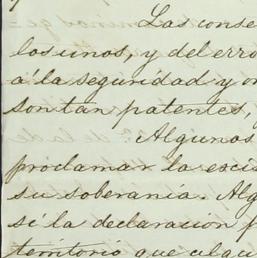 Las conse
los unos, y del erro
á la seguridad y or
son tan patentes,
Algunos
proclamar la escis
su soberanía. Alg
si la declaracion p
territorio que